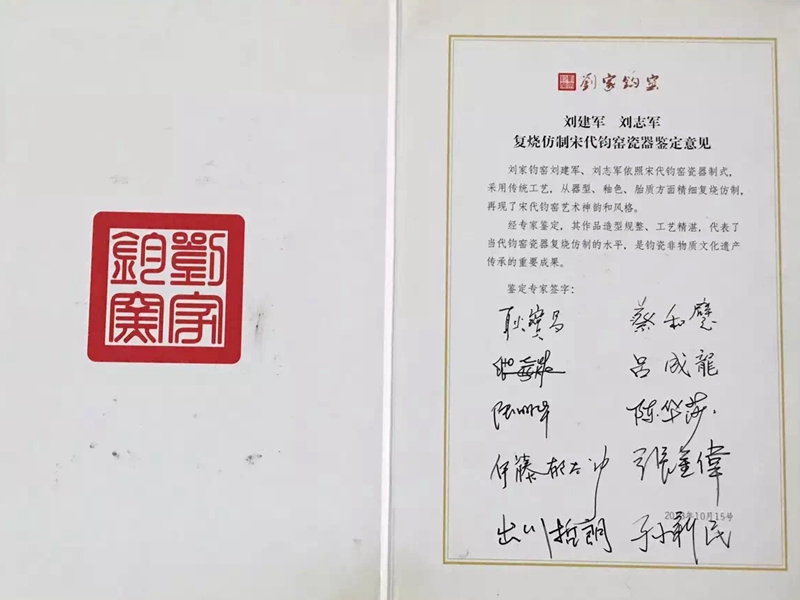 劉家
鈞窯
劉家鈞窯
刘建军 刘志军
复烧仿制宋代钧窑瓷器鉴定意见
刘家钧窑刘建军、刘志军依照宋代钧窑瓷器制式，
采用传统工艺，从器型、釉色、胎质方面精细复烧仿制，
再现了宋代钧窑艺术神韵和风格。
经专家鉴定，其作品造型规整、工艺精湛，代表了
当代钧窑瓷器复烧仿制的水平，是钧瓷非物质文化遗产
传承的重要成果。
鉴定专家签字：
耿寶昌 蔡和璧
吕成龍
陆明华 陈华莎
伊藤郁太郎 張金偉
年10月15号
出川哲朗 孙新民